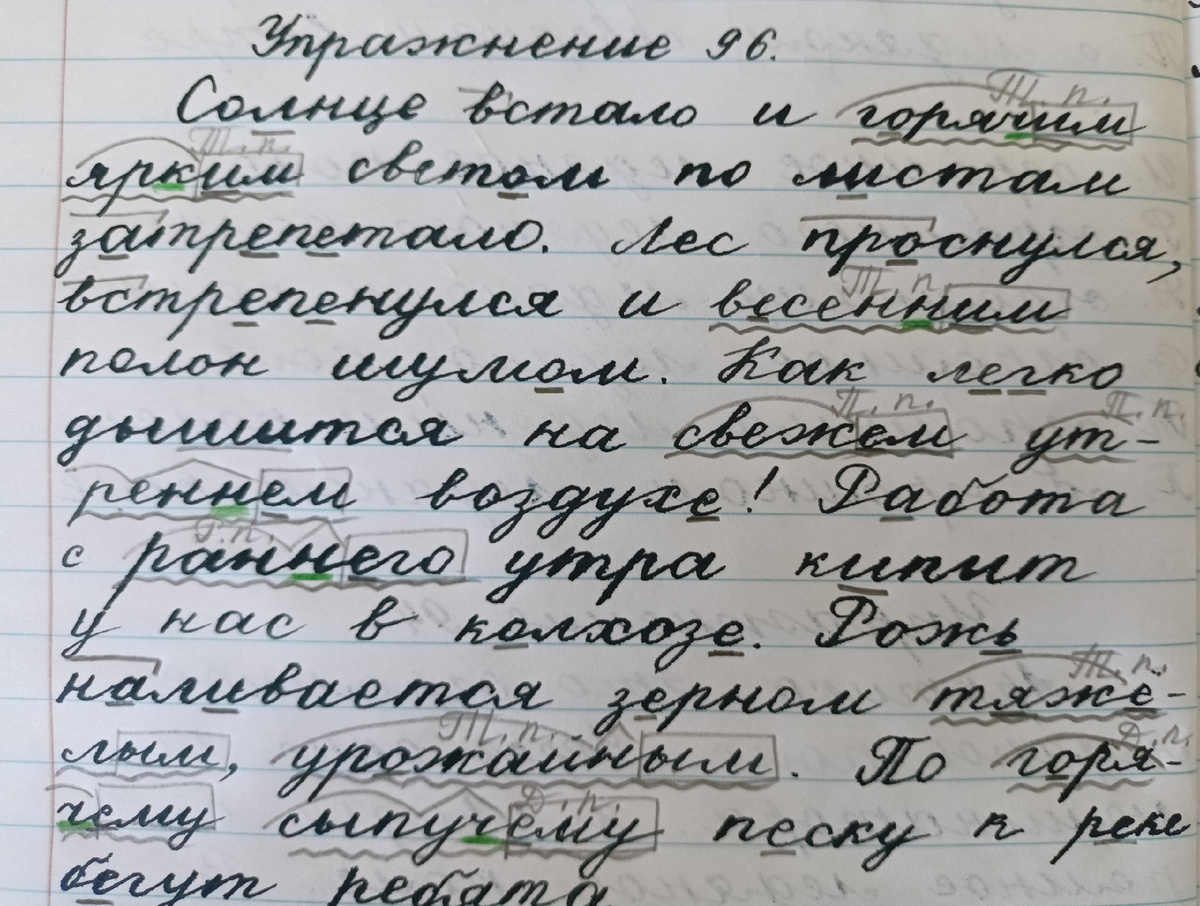 Упражнение 96.
Солнце встало и горячим
Т. п.
ярким светом по листам
Т. п.
затрепетало. Лес проснулся,
встрепенулся и весенним
Т. п.
полон шумом. Как легко
дышится на свежем ут-
П. п. П. п.
реннем воздухе! Работа
с раннего утра кипит
Р. п.
у нас в колхозе. Рожь
наливается зерном тяжё-
Т. п.
лым, урожайным. По горя-
Т. п. Д. п.
чему сыпучему песку к реке
Д. п.
бегут ребята